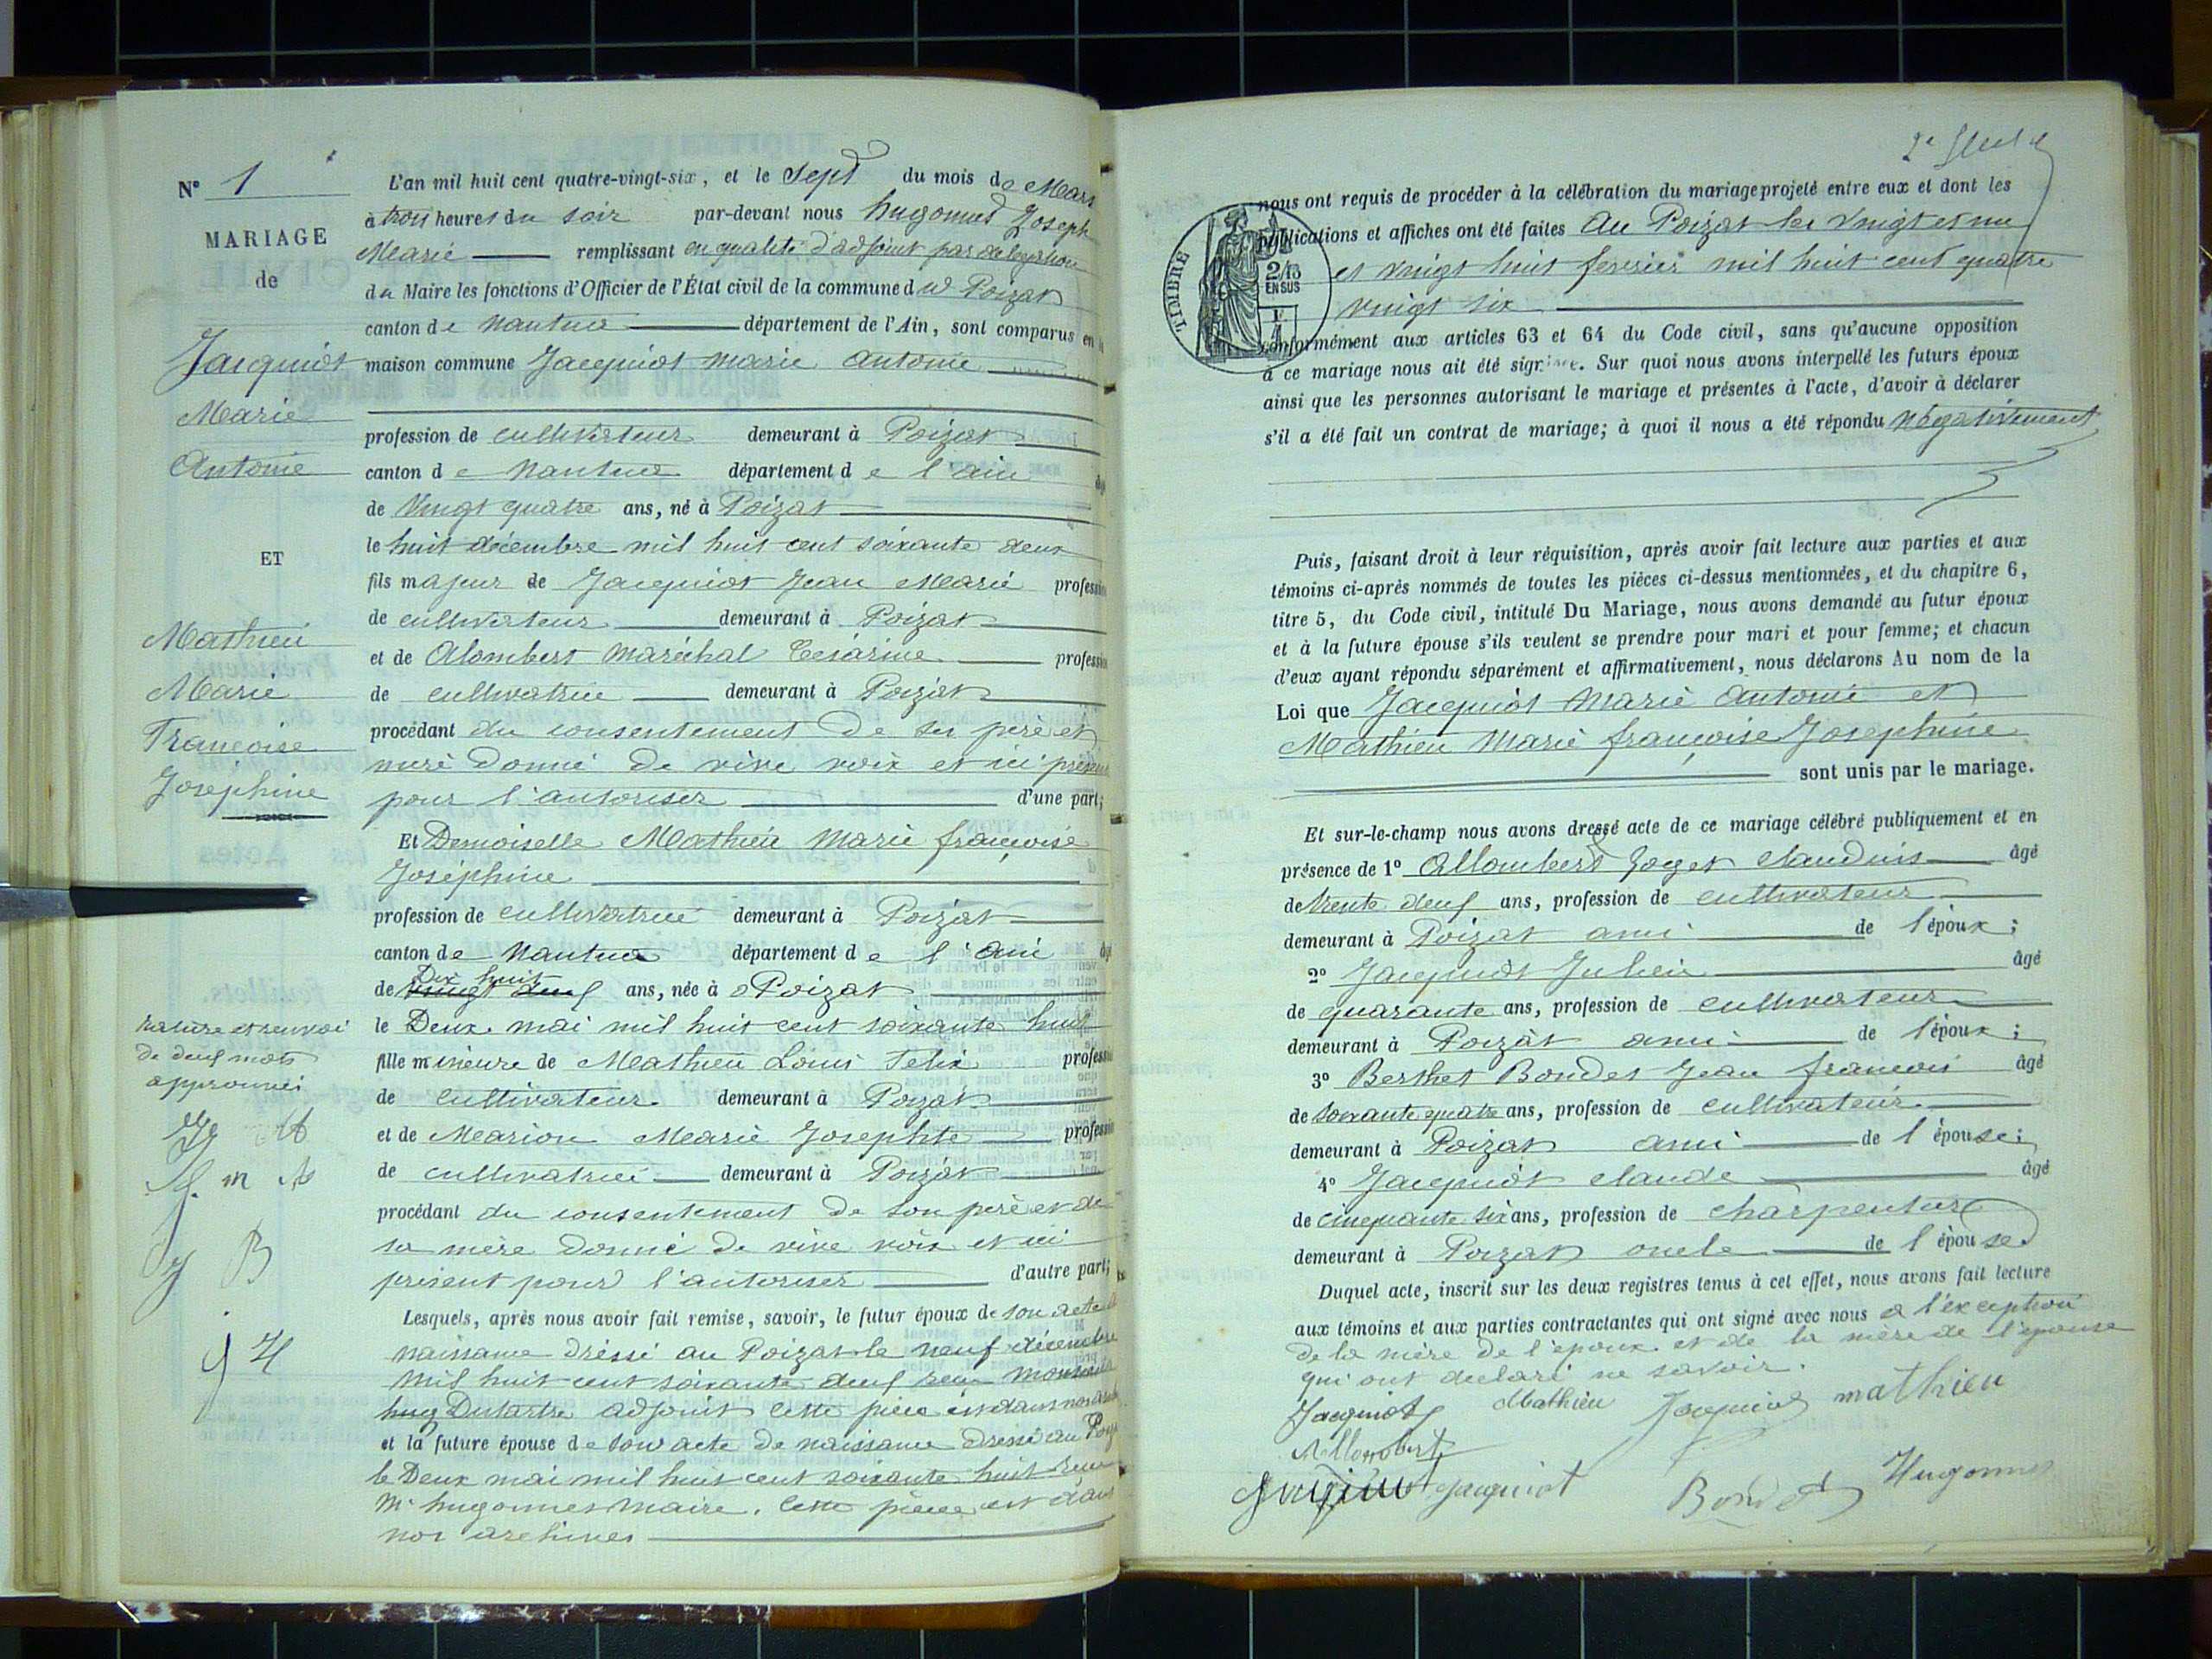 N° 1
MARIAGE
de
Jacquiot
Marie
Antonie
ET
Mathieu
Marie
Françoise
Joséphine
rature et renvoi
de deux mots
approuvés
J B
J H
L'an mil huit cent quatre-vingt-six, et le Sept du mois de Mars
à trois heures du soir par-devant nous hugonnet Joseph
Marie remplissant en qualité d'adjoint par délégation
du Maire les fonctions d'Officier de l'État civil de la commune du Poizat
canton de Nantua département de l'Ain, sont comparus en la
maison commune Jacquiot Marie Antonie
profession de cultivateur demeurant à Poizat
canton de Nantua département de l'ain âgé
de Vingt quatre ans, né à Poizat
le huit décembre mil huit cent soixante deux
fils majeur de Jacquiot Jean Marie profession
de cultivateur demeurant à Poizat
et de Alombert Maréchal Césarine profession
de cultivatrice demeurant à Poizat
procédant du consentement de ses père et
mère donné de vive voix et ici présent
pour l'autoriser d'une part;
Et Demoiselle Mathieu Marie françoise
Joséphine
profession de cultivatrice demeurant à Poizat
canton de Nantua département de l'ain âgé
Dix huit
de vingt deux ans, née à Poizat
le Deux mai mil huit cent soixante huit
fille mineure de Mathieu Louis Felix profession
de cultivateur demeurant à Poizat
et de Marion Marie Josephte profession
de cultivatrice demeurant à Poizat
procédant du consentement de son père et de
sa mère donné de vive voix et ici
présent pour l'autoriser d'autre part;
Lesquels, après nous avoir fait remise, savoir, le futur époux de son acte de
naissance dressé au Poizat le neuf décembre
mil huit cent soixante deux reçu
hug Dutartre adjoint cette pièce est dans nos
et la future épouse de son acte de naissance dressé au
le Deux mai mil huit cent soixante huit reçu
Mr hugonnet maire. Cette pièce est dans
nos archives
2e
nous ont requis de procéder à la célébration du mariage projeté entre eux et dont les
publications et affiches ont été faites Au Poizat les vingt et un
et vingt huit fevrier mil huit cent quatre
vingt six
TIMBRE
2/13
EN SUS
conformément aux articles 63 et 64 du Code civil, sans qu'aucune opposition
à ce mariage nous ait été signifiée. Sur quoi nous avons interpellé les futurs époux
ainsi que les personnes autorisant le mariage et présentes à l'acte, d'avoir à déclarer
s'il a été fait un contrat de mariage; à quoi il nous a été répondu négativement
Puis, faisant droit à leur réquisition, après avoir fait lecture aux parties et aux
témoins ci-après nommés de toutes les pièces ci-dessus mentionnées, et du chapitre 6,
titre 5, du Code civil, intitulé Du Mariage, nous avons demandé au futur époux
et à la future épouse s'ils veulent se prendre pour mari et pour femme; et chacun
d'eux ayant répondu séparément et affirmativement, nous déclarons Au nom de la
Loi que Jacquiot Marie Antonie et
Mathieu Marie françoise Josephine
sont unis par le mariage.
Et sur-le-champ nous avons dressé acte de ce mariage célébré publiquement et en
présence de 1° Allombert Goget Claudius âgé
de trente deux ans, profession de cultivateur
demeurant à Poizat ami de l'époux;
2° Jacquiot Julien âgé
de quarante ans, profession de cultivateur
demeurant à Poizat ami de l'époux;
3° Berthet Bondet Jean françois âgé
de soixante quatre ans, profession de cultivateur
demeurant à Poizat ami de l'épouse;
4° Jacquiot claude âgé
de cinquante six ans, profession de charpentier
demeurant à Poizat oncle de l'épouse
Duquel acte, inscrit sur les deux registres tenus à cet effet, nous avons fait lecture
aux témoins et aux parties contractantes qui ont signé avec nous à l'exception
de la mère de l'époux et de la mère de l'épouse
qui ont declaré ne savoir.
Jacquiot Mathieu Jacquiot mathieu
Allombert
Jacquiot Jacquiot Bondet Hugonnet